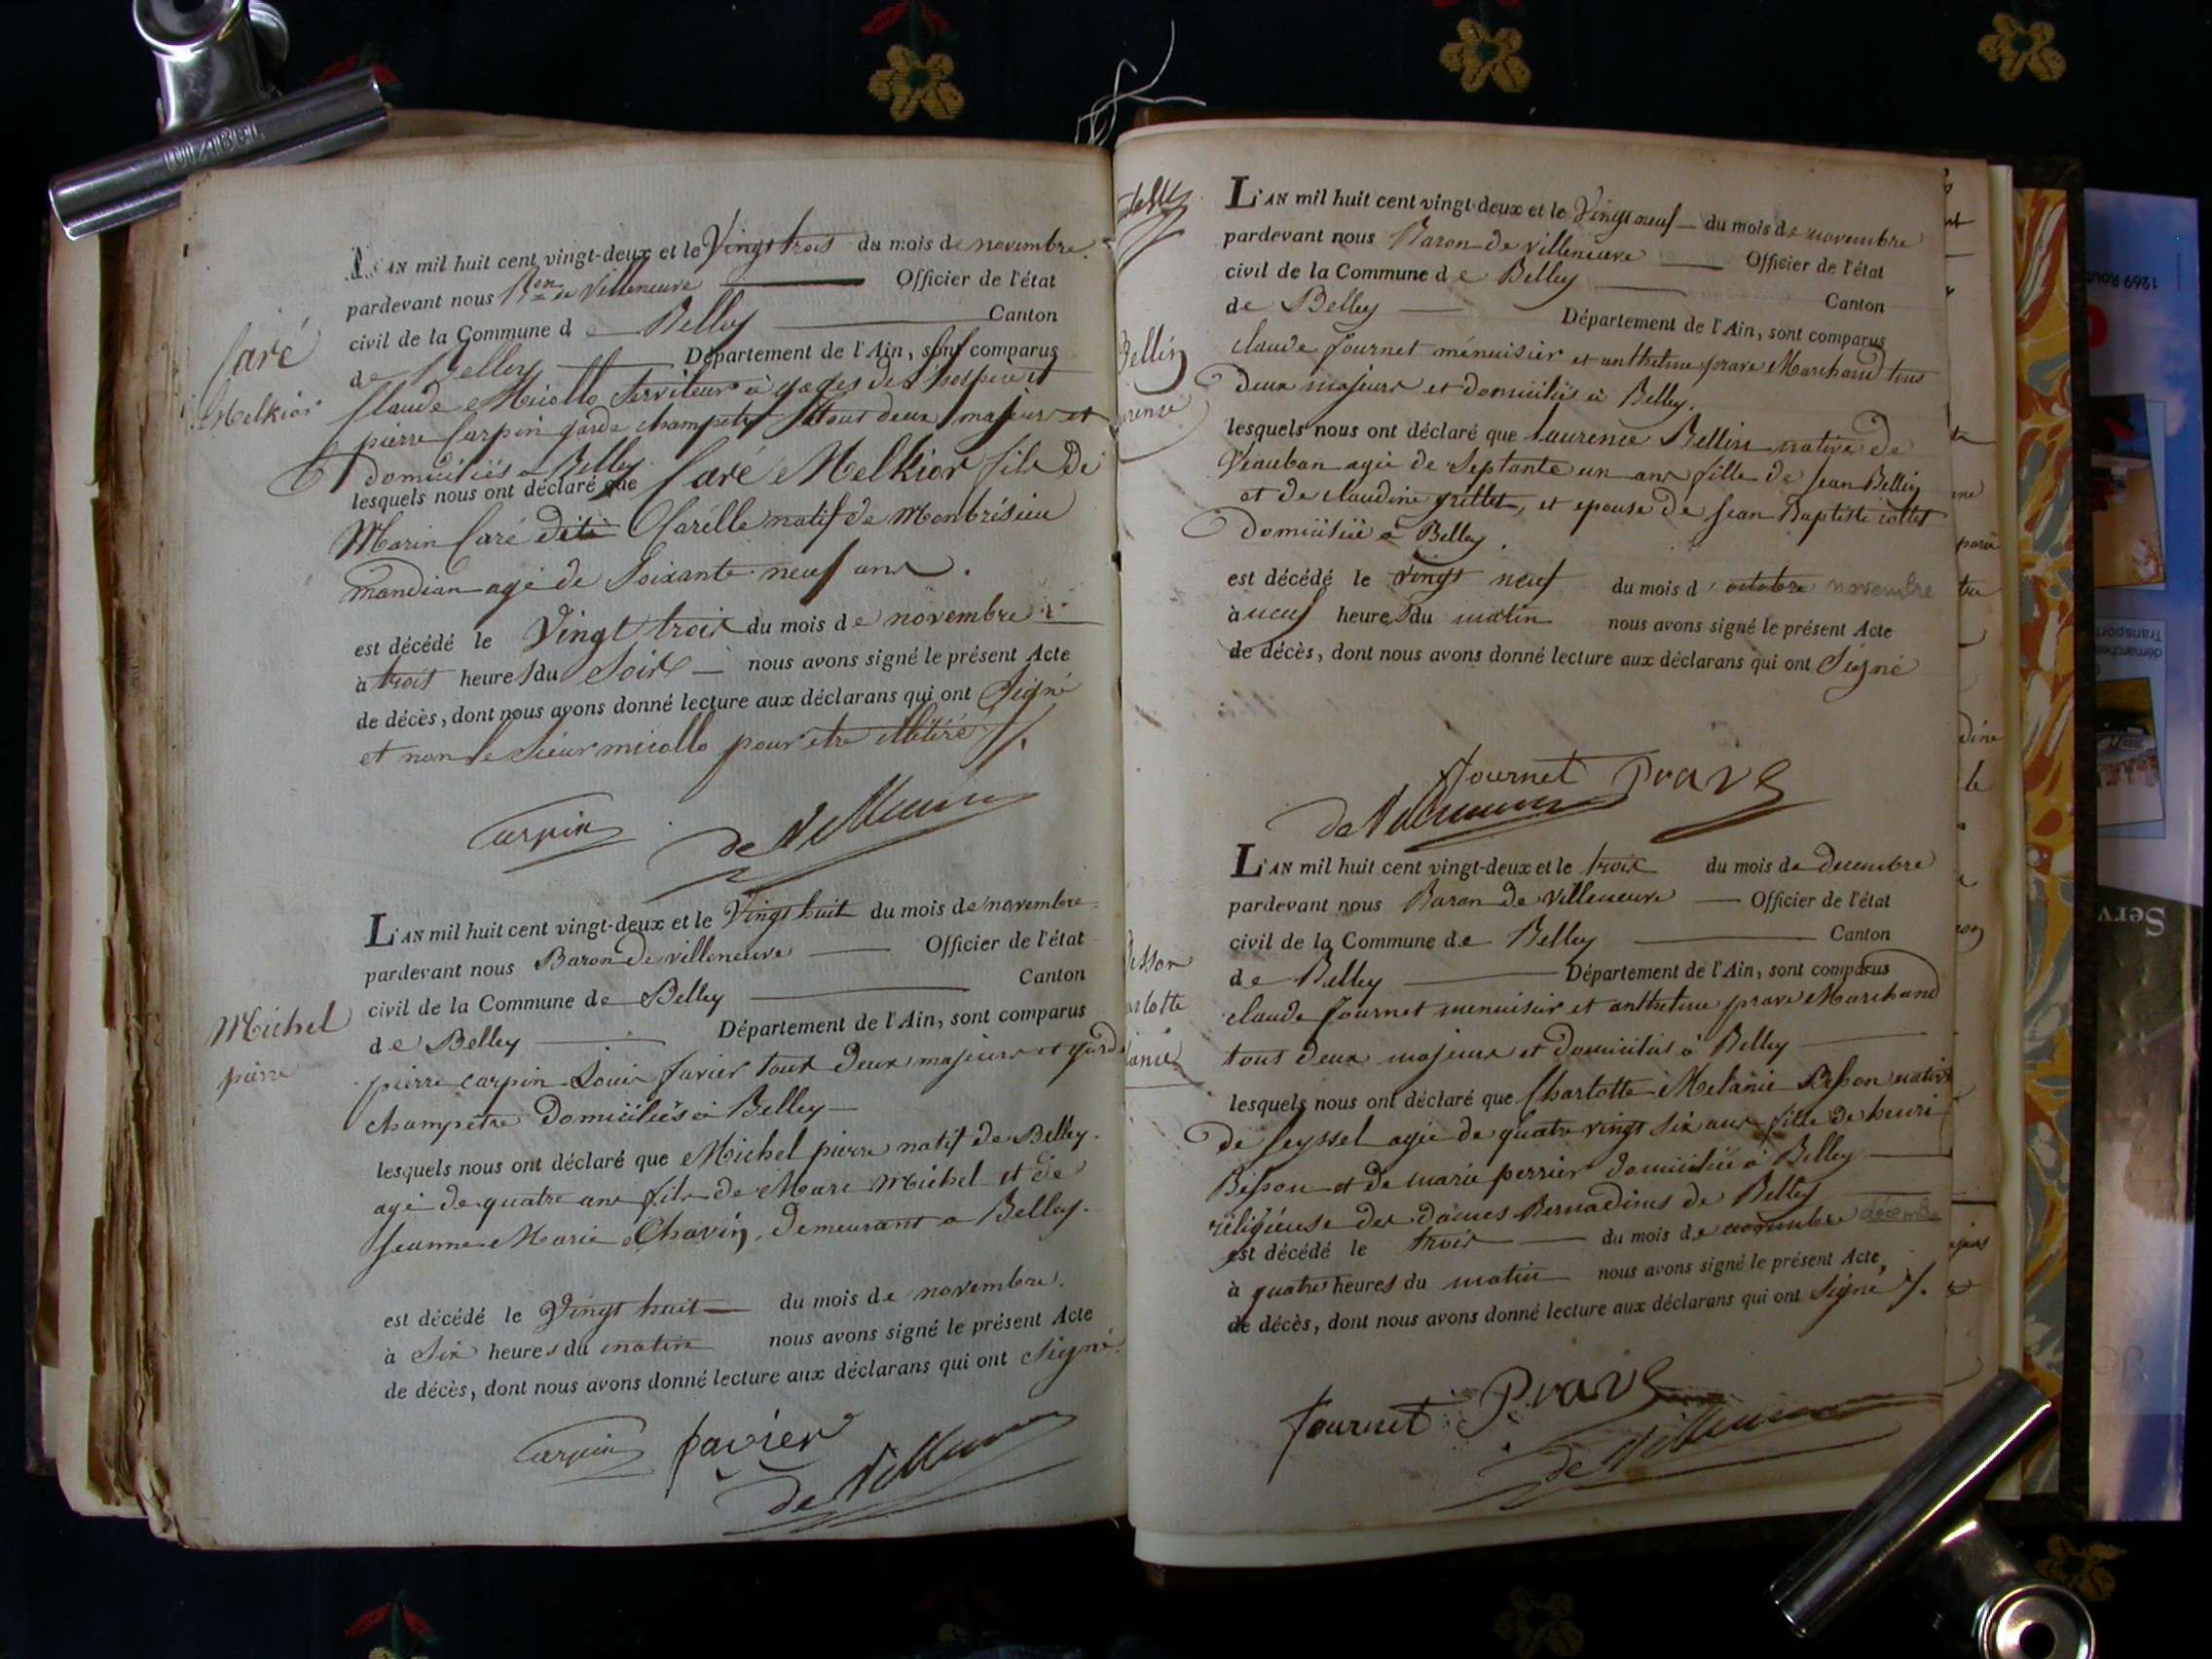 L'AN mil huit cent vingt-deux et le Vingt trois du mois de novembre
pardevant nous Bon de Villeneuve Officier de l'état
civil de la Commune de Belley Canton
de Belley Département de l'Ain, sont comparus
Claude Miollo Serviteur à gages des hospices et
pierre Carpin garde champetre tout deux majeurs et
domiciliés a Belley
lesquels nous ont déclaré que Caré Melkior fils de
Marin Caré Carélle natif de Monbrésieu
mandian agé de Soixante neuf ans.
est décédé le Vingt trois du mois de novembre
à trois heures du Soir nous avons signé le présent Acte
de décès, dont nous avons donné lecture aux déclarans qui ont Signé
et non le Sieur miollo pour etre illétéré
Carpin
de Villeneuve
Caré
Melkior
L'AN mil huit cent vingt-deux et le Vingt huit du mois de novembre
pardevant nous Baron de villeneuve Officier de l'état
civil de la Commune de Belley Canton
de Belley Département de l'Ain, sont comparus
pierre carpin Louis favier tout deux majeurs et garde
champetre Domiciliés à Belley
lesquels nous ont déclaré que Michel pierre natif de Belley.
agé de quatre ans fils de Marc Michel et de
jeanne Marie Chavin, demeurant a Belley.
est décédé le Vingt huit du mois de novembre.
à Six heures du matin nous avons signé le présent Acte
de décès, dont nous avons donné lecture aux déclarans qui ont Signé.
Carpin favier
de Villeneuve
Michel
pierre
L'AN mil huit cent vingt-deux et le Vingt neuf du mois de novembre
pardevant nous Baron de villeneuve Officier de l'état
civil de la Commune de Belley Canton
de Belley Département de l'Ain, sont comparus
claude fournet ménuisier et anthelme prave Marchand tous
deux majeurs et domiciliés à Belley.
lesquels nous ont déclaré que laurence Bellin native de
agée de Septante un ans fille de jean Bellin
et de claudine grillet, et epouse de jean Baptiste
Domiciliée à Belley.
est décédé le Vingt neuf du mois d'octobre novembre
à neuf heures du matin nous avons signé le présent Acte
de décès, dont nous avons donné lecture aux déclarans qui ont Signé
fournet Prave
de Villeneuve
Bellin
L'AN mil huit cent vingt-deux et le trois du mois de decembre
pardevant nous Baron de villeneuve Officier de l'état
civil de la Commune de Belley Canton
de Belley Département de l'Ain, sont comparus
claude fournet menuisier et anthelme prave Marchand
tous deux majeurs et domiciliés à Belley
lesquels nous ont déclaré que Charlotte Melanie Besson native
de Seyssel agée de quatre vingt six ans fille de henri
Besson et de marie perrier domiciliée à Belley
réligieuse des dames Bernadines de Belley
est décédé le trois du mois de novembre décembre
à quatre heures du matin nous avons signé le présent Acte
de décès, dont nous avons donné lecture aux déclarans qui ont Signé
fournet Prave
de Villeneuve